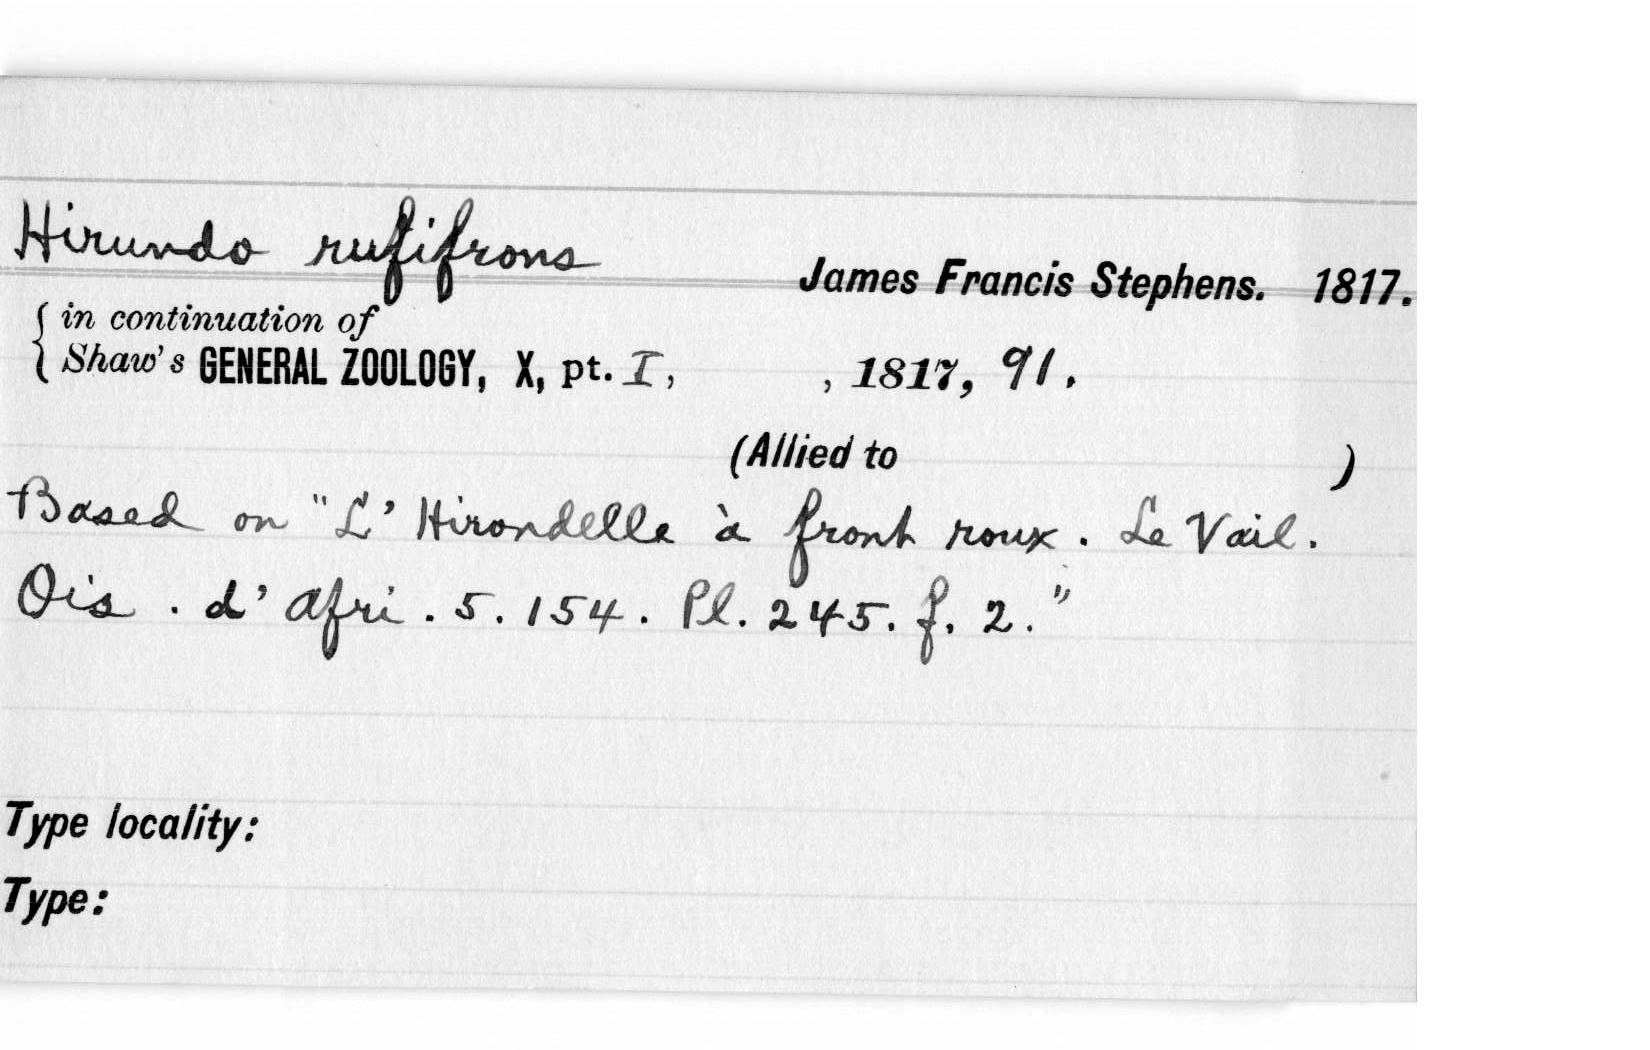 Hirundo rufifrons
James Francis Stephens. 1817.
{ in continuation of
Shaw's GENERAL ZOOLOGY, X, pt. I, , 1817, 91.
(Allied to )
Based on "L' Hirondelle à front roux. Le Vail.
Ois. d' Afri. 5. 154. Pl. 245. f. 2."
Type locality:
Type: